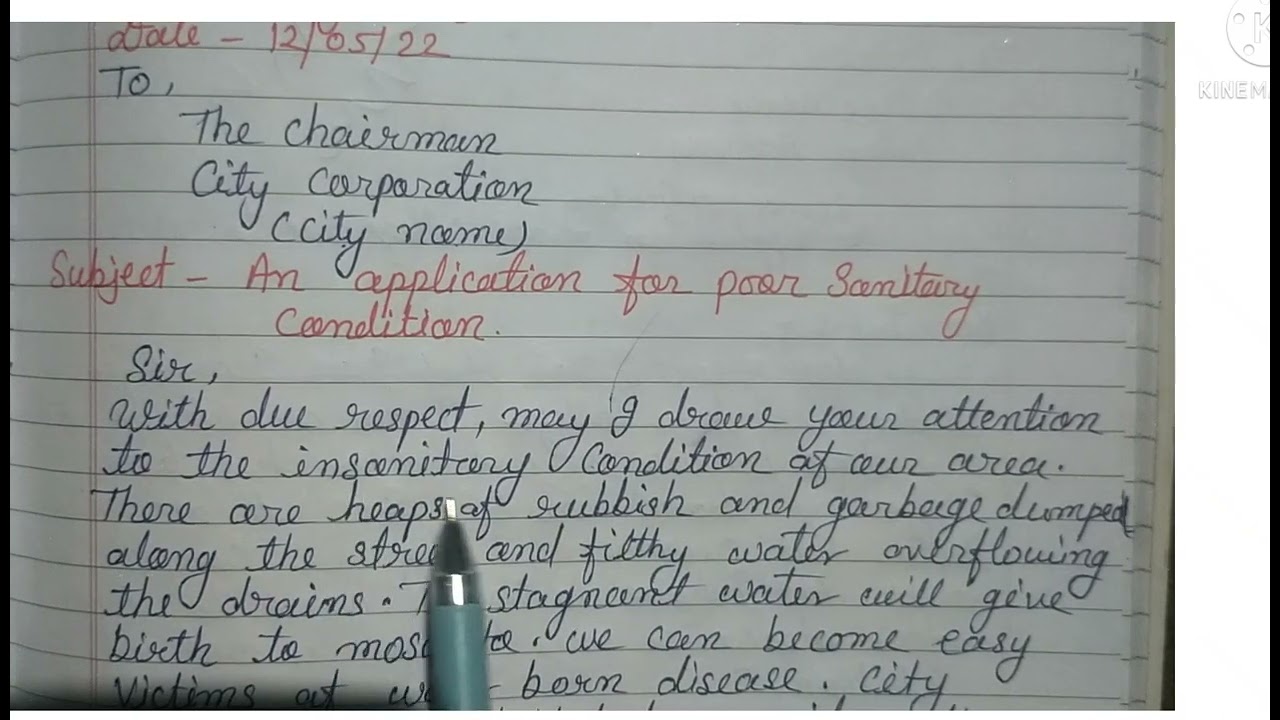 Date - 12/05/22
To,
The Chairman
City Corporation
(City name)
Subject - An application for poor Sanitary
Condition.
Sir,
With due respect, may I draw your attention
to the insanitary Condition of our area.
There are heaps of rubbish and garbage dumped
along the and filthy water overflowing
the drains. stagnant water will give
birth to we can become easy
Victims of born disease. City
KINEMA